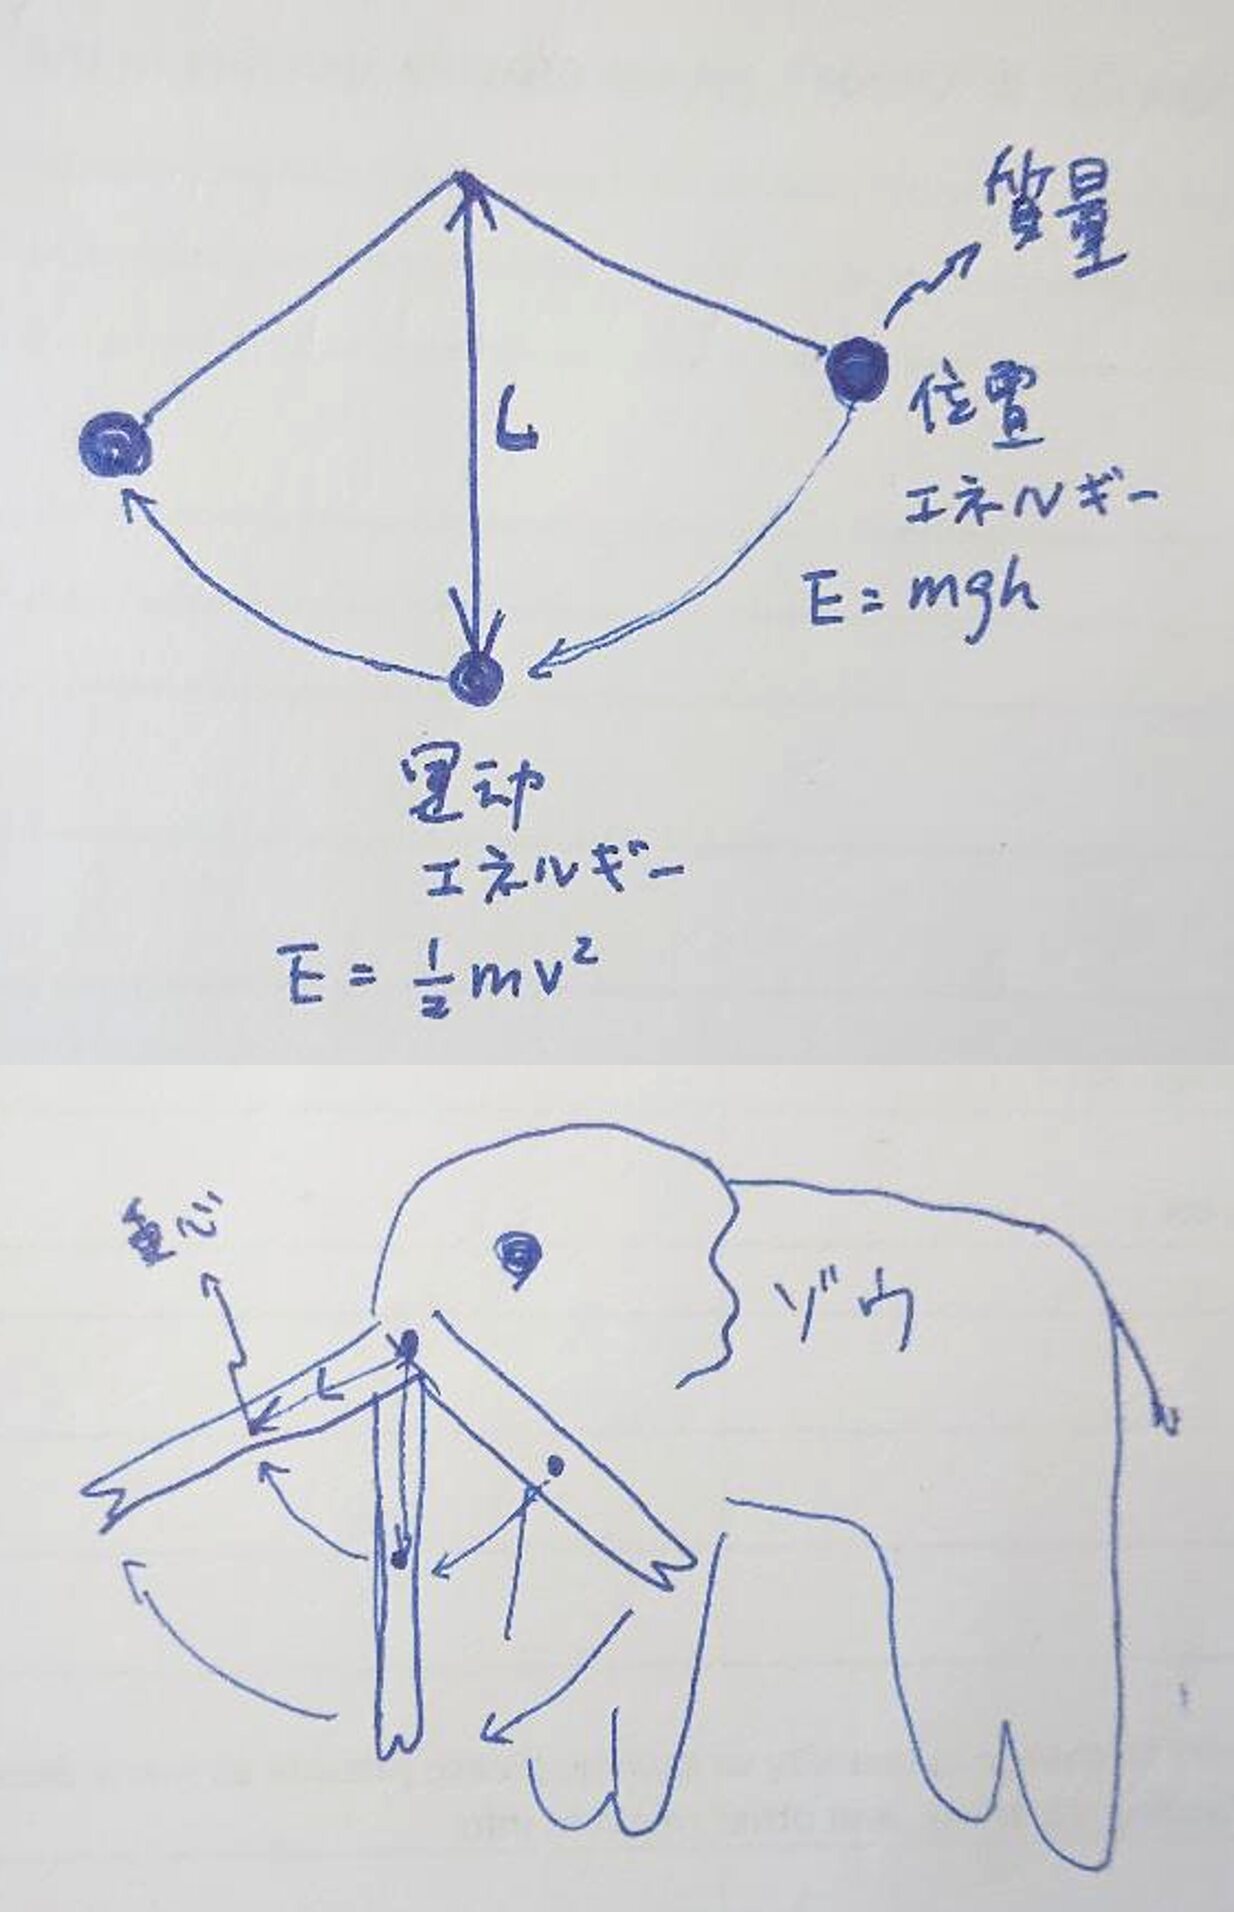 質量
L
位置
エネルギー
E = mgh
運動
エネルギー
E = 1/2 mv²
重心
ゾウ
L